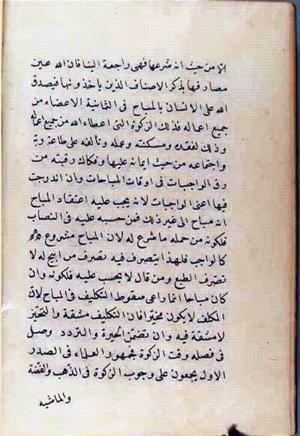 الا من حيث انه شرعها فهي راجعة الينا فان الله عين
مصارفها بذكر الاصناف الذين ياخذونها فيصدق
الله على الانسان بالمباح في الثمانية الاعضاء من
جميع اعماله فذلك الزكوة التي اعطاء الله من جميع اعماله
وذلك لفقره ومسكنته وعمله وتالفه على طاعة ربه
واجتماعه من حيث ايمانه عليها وفكاك رقبته من
رق الواجبات في اوقات المباحات وان اندرجت
فيها اعنى الواجبات لانه يجب عليه اعتقاد المباح
انه مباح الى غير ذلك فمن حسبه عليه في النصاب
فلكونه من جملة ما شرع له لان المباح مشروع
كالواجب فلهذا يتصرف فيه تصرف من ابيح له لا
تصرف الطبع ومن قال لا يحتسب عليه فلكونه وان
كان مباحا انما راعى سقوط التكليف في المباح لان
المكلف لا يكون مخيرا فان التكليف مشقة والتخيير
لا مشقة فيه وان تضمن الحيرة والتردد وصل
في فصله وقت الزكوة فجمهور العلماء في الصدر
الاول يجمعون على وجوب الزكوة في الذهب والفضة
والماشية